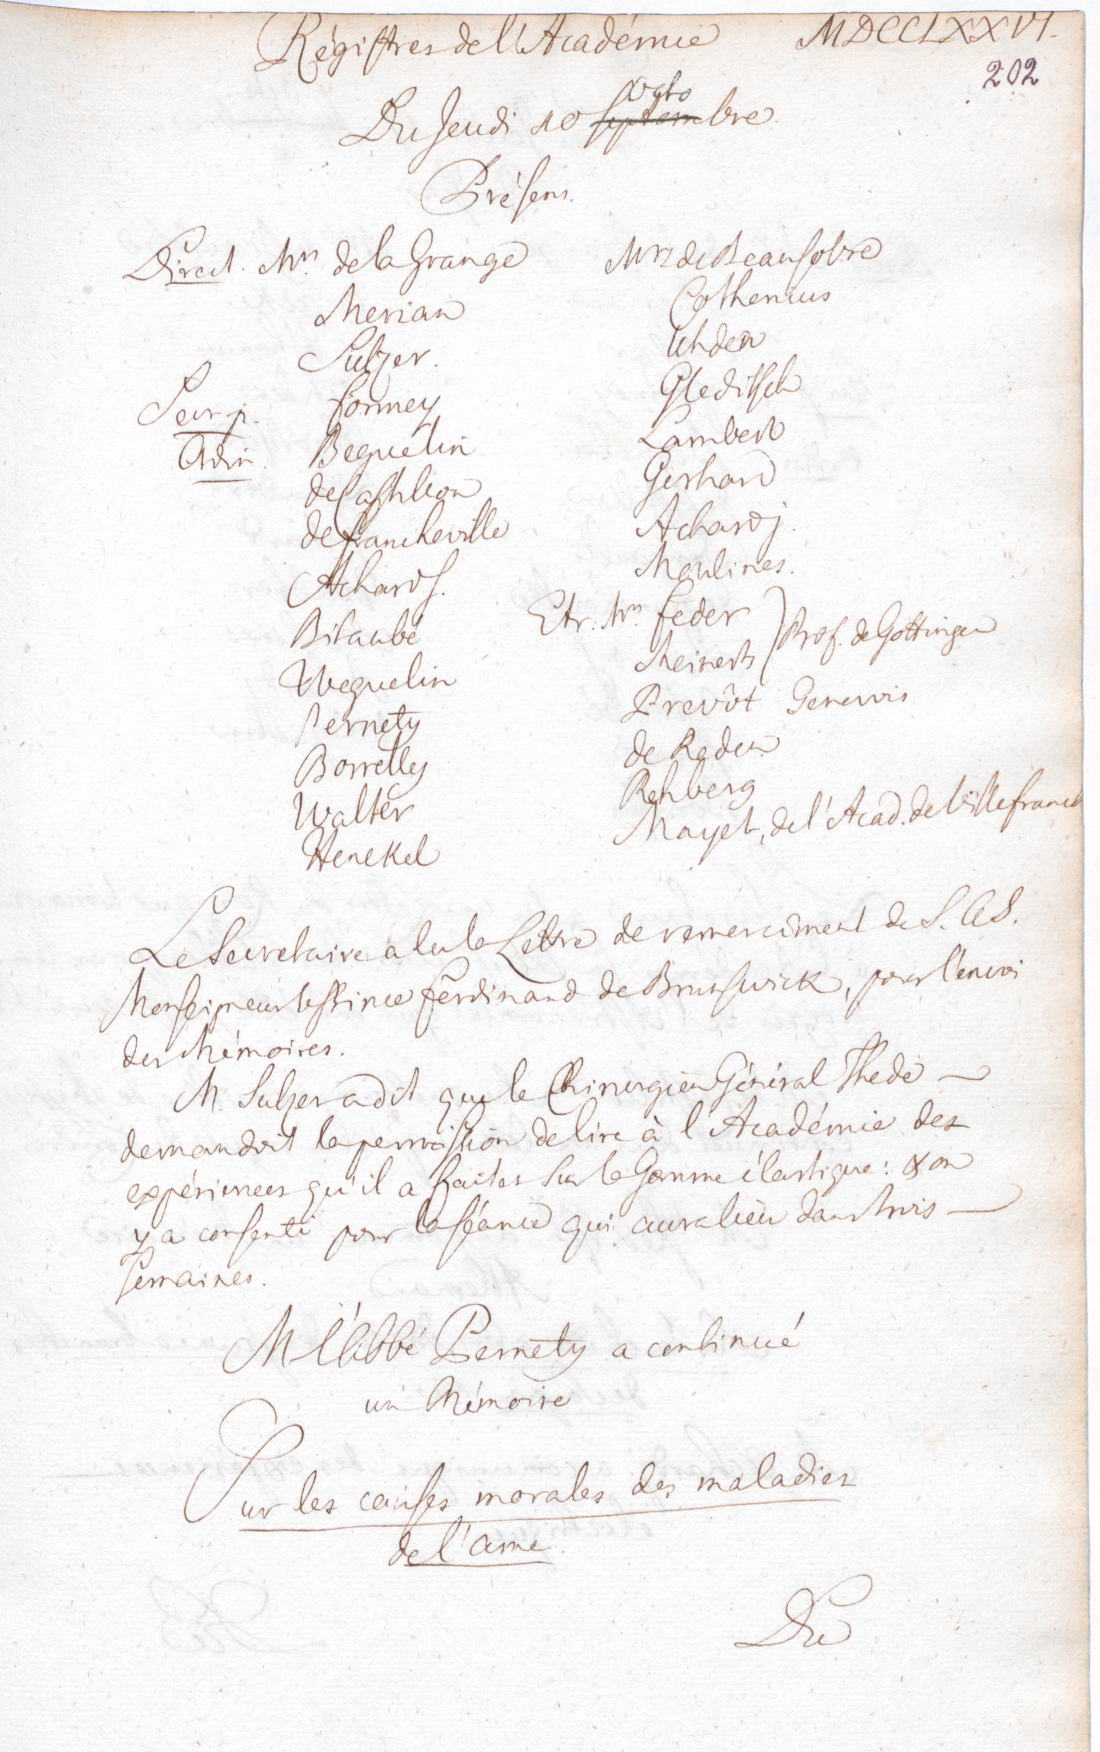 Régistres de l'Académie MDCCLXXVI.
202
Du Jeudi 10 Octobre
Présens.
Direct. Mrs. de la Grange
Merian
Sulzer.
Secr. p. Formey
Adm. Beguelin
de Castillon
de Francheville
Achard S.
Bitaubé
Weguelin
Pernety
Borrelly
Walter
Henckel
Mrs de Beausobre
Cothenius
Uhden
Gleditsch
Lambert
Gerhard
Achard j.
Moulines.
Etr. Mrs. Feder
Meiners } Prof. de Gottingen
Prevôt Genevois
de Reden
Rehberg
Mayet, de l'Acad. de Villefranche
Le Secretaire a lu la Lettre de remerciment de S. A. S.
Monseigneur le Prince Ferdinand de Brunswick, pour l'envoi
des Mémoires.
M. Sulzer a dit que le Chirurgien Général Thede
demandoit la permission de lire à l'Académie des
expériences qu'il a faites sur la Gomme élastique: & on
y a consenti pour la séance qui aura lieu dans trois
semaines.
M. l'Abbé Pernety a continué
un Mémoire
Sur les causes morales des maladies
de l'ame.
Du